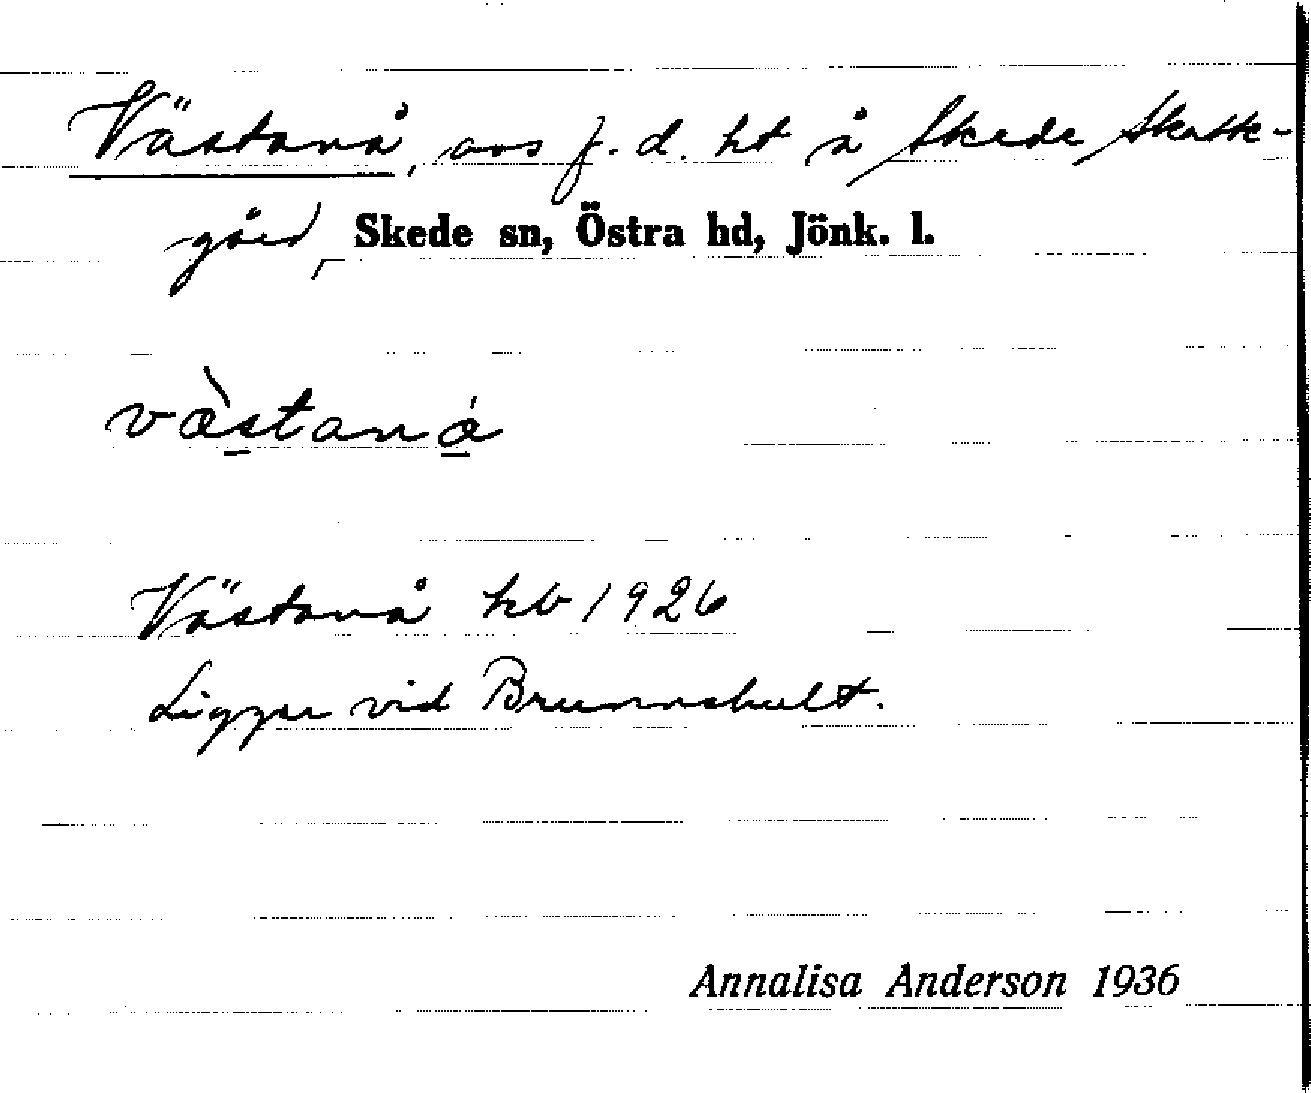 Västanå, avs f. d. ht å Skede Skatte-
gård, Skede sn, Östra hd, Jönk. l.
væ̀staná
Västanå kb 1926
Ligger vid Brunnshult.
Annalisa Anderson 1936